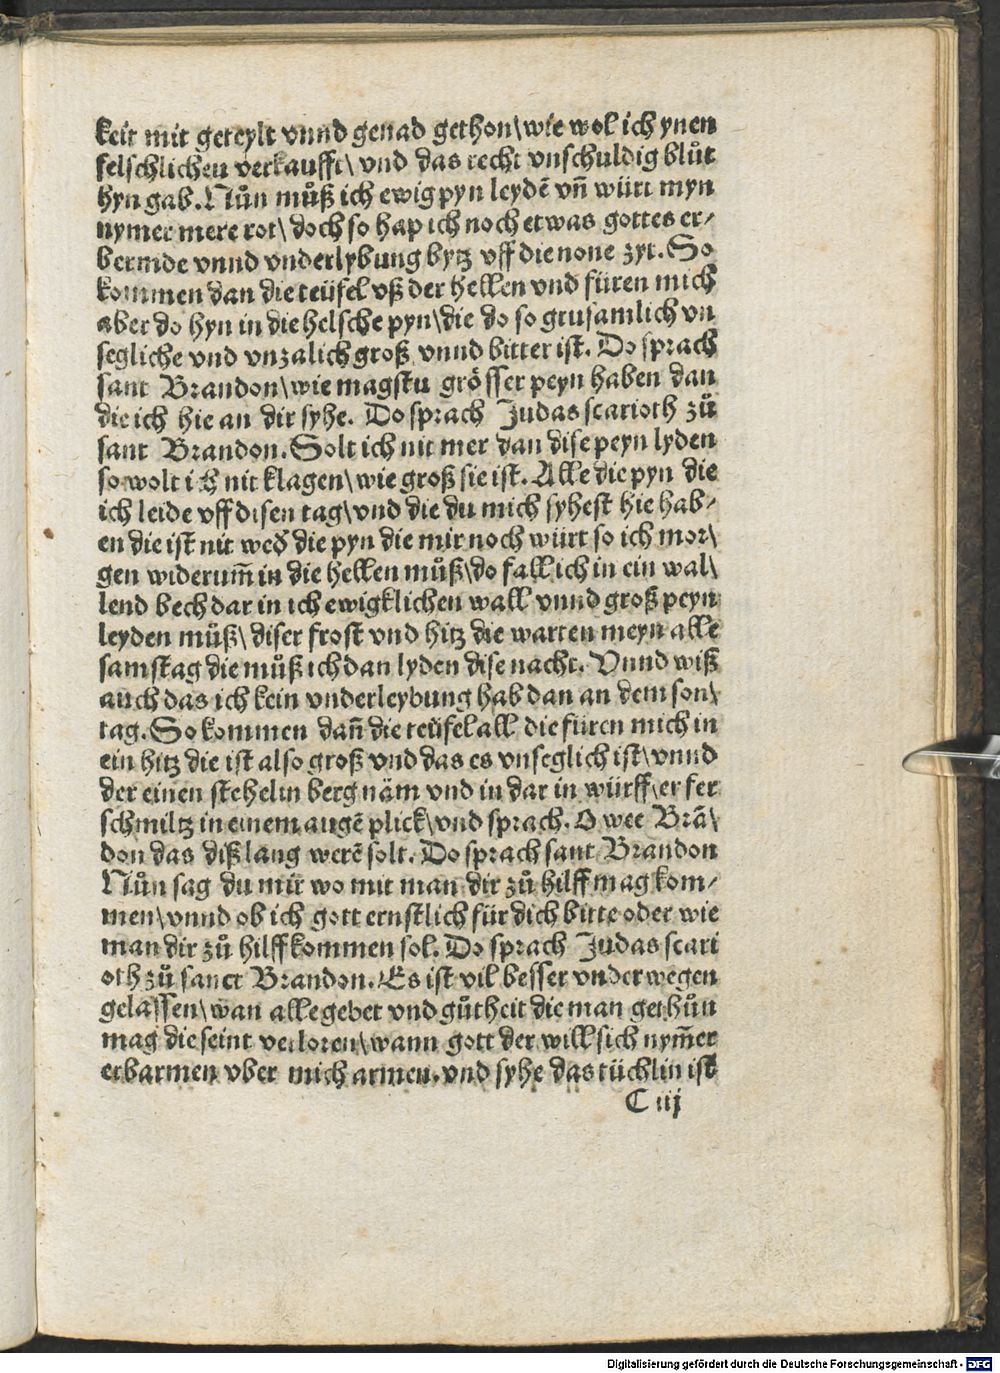 keit mit geteylt vnnd genad gethon\wie wol ich ynen
felschlichen verkaufft\ vnd das recht vnschuldig blůt
hyn gab. Nůn můß ich ewig pyn leydẽ vñ würt myn
nymer mere rot\ doch so hap ich noch etwas gottes er⸗
bermde vnnd vnderlybung bytz vff die none zyt. So
kommen dan die teüfel vß der hellen vnd füren mich
aber do hyn in die helsche pyn\die do so grusamlich vn
segliche vnd vnzalich groß vnnd bitter ist. Do sprach
sant Brandon\wie magstu grösser peyn haben dan
die ich hie an dir syhe. Do sprach Judas scarioth zů
sant Brandon. Solt ich nit mer dan dise peyn lyden
so wolt ich nit klagen\wie groß sie ist. Alle die pyn die
ich leide vff disen tag\vnd die du mich syhest hie hab⸗
en die ist nit wed̕ die pyn die mir noch würt so ich mor\
gen widerum̃ in die hellen můß\do fall ich in ein wal\
lend bech dar in ich ewigklichen wall vnnd groß peyn
leyden můß\ diser frost vnd hitz die warten meyn alle
samstag die můß ich dan lyden dise nacht. Vnnd wiß
auch das ich kein vnderleybung hab dan an dem son\
tag. So kommen dañ die teüfel all die füren mich in
ein hitz die ist also groß vnd das es vnseglich ist\vnnd
der einen stehelin berg näm vnd in dar in würff\er fer
schmiltz in einem augẽ plick\vnd sprach. O wee Brã\
don das diß lang werẽ solt. Do sprach sant Brandon
Nůn sag du mir wo mit man dir zů hilff mag kom⸗
men\vnnd ob ich gott ernstlich für dich bitte oder wie
man dir zů hilff kommen sol. Do sprach Judas scari
oth zů sanct Brandon. Es ist vil besser vnder wegen
gelassen\wan alle gebet vnd gůtheit die man gethůn
mag die seint verloren\wann gott der will sich nym̃er
erbarmen vber mich armen. vnd syhe das tüchlin ist
C iij
Digitalisierung gefördert durch die Deutsche Forschungsgemeinschaft - DFG